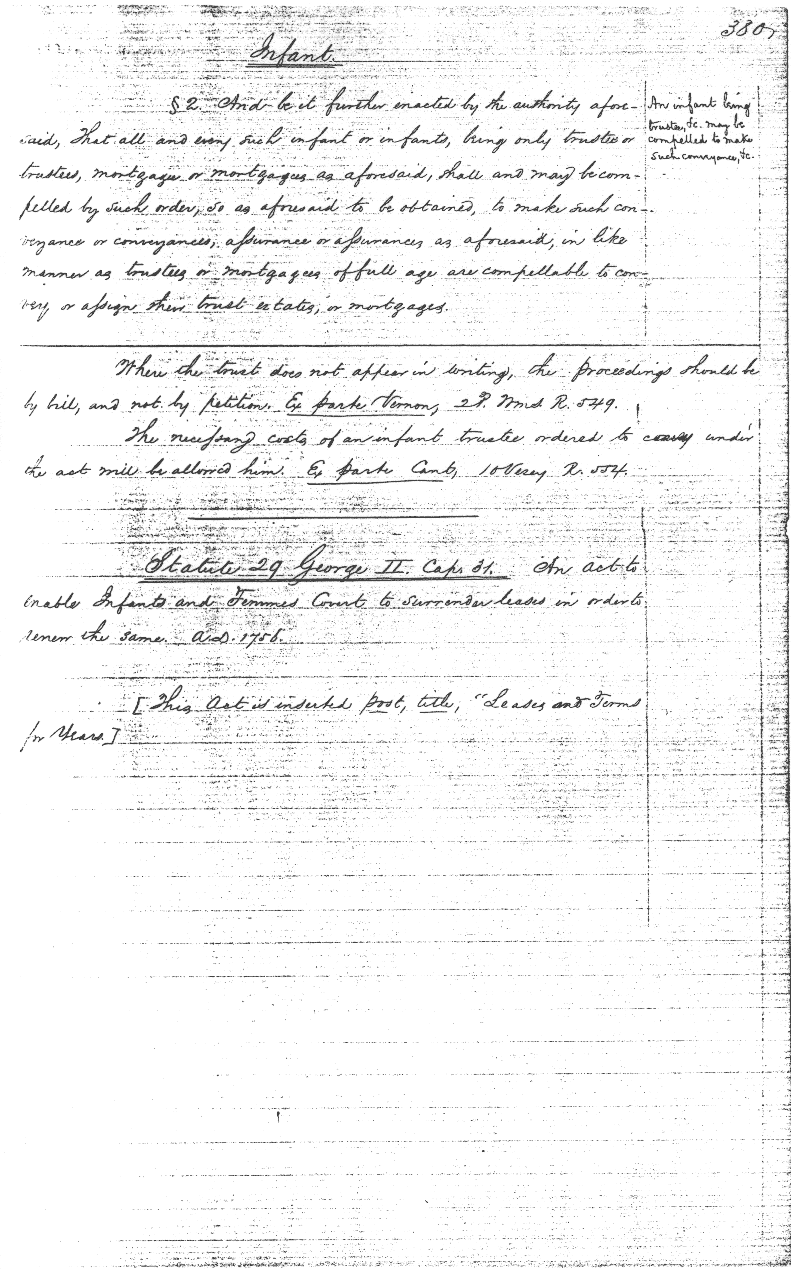 380
Infant.
§ 2. And be it further enacted by the authority afore-
said, That all and every such infant or infants, being only trustee or
trustees, mortgagee or mortgagees as aforesaid, shall and may be com-
pelled by such order, so as aforesaid to be obtained, to make such con-
veyance or conveyances, assurance or assurances as aforesaid, in like
manner as trustees or mortgagees of full age are compellable to con-
vey, or assign their trust estates, or mortgages.
An infant being
trustee, &c. may be
compelled to make
such conveyance, &c.
Where the trust does not appear in writing, the proceedings should be
by bill, and not by petition. Ex parte Vernon, 2 P. Wms R. 549.
The necessary costs of an infant trustee ordered to convey under
the act will be allowed him. Ex parte Cant, 10 Vesey R. 554.
Statute 29 George II. Cap. 31. An act to
enable Infants and Femmes Covert to surrender leases in order to
renew the same. A.D. 1756.
[This Act is inserted post, title, "Leases and Terms
for Years.]